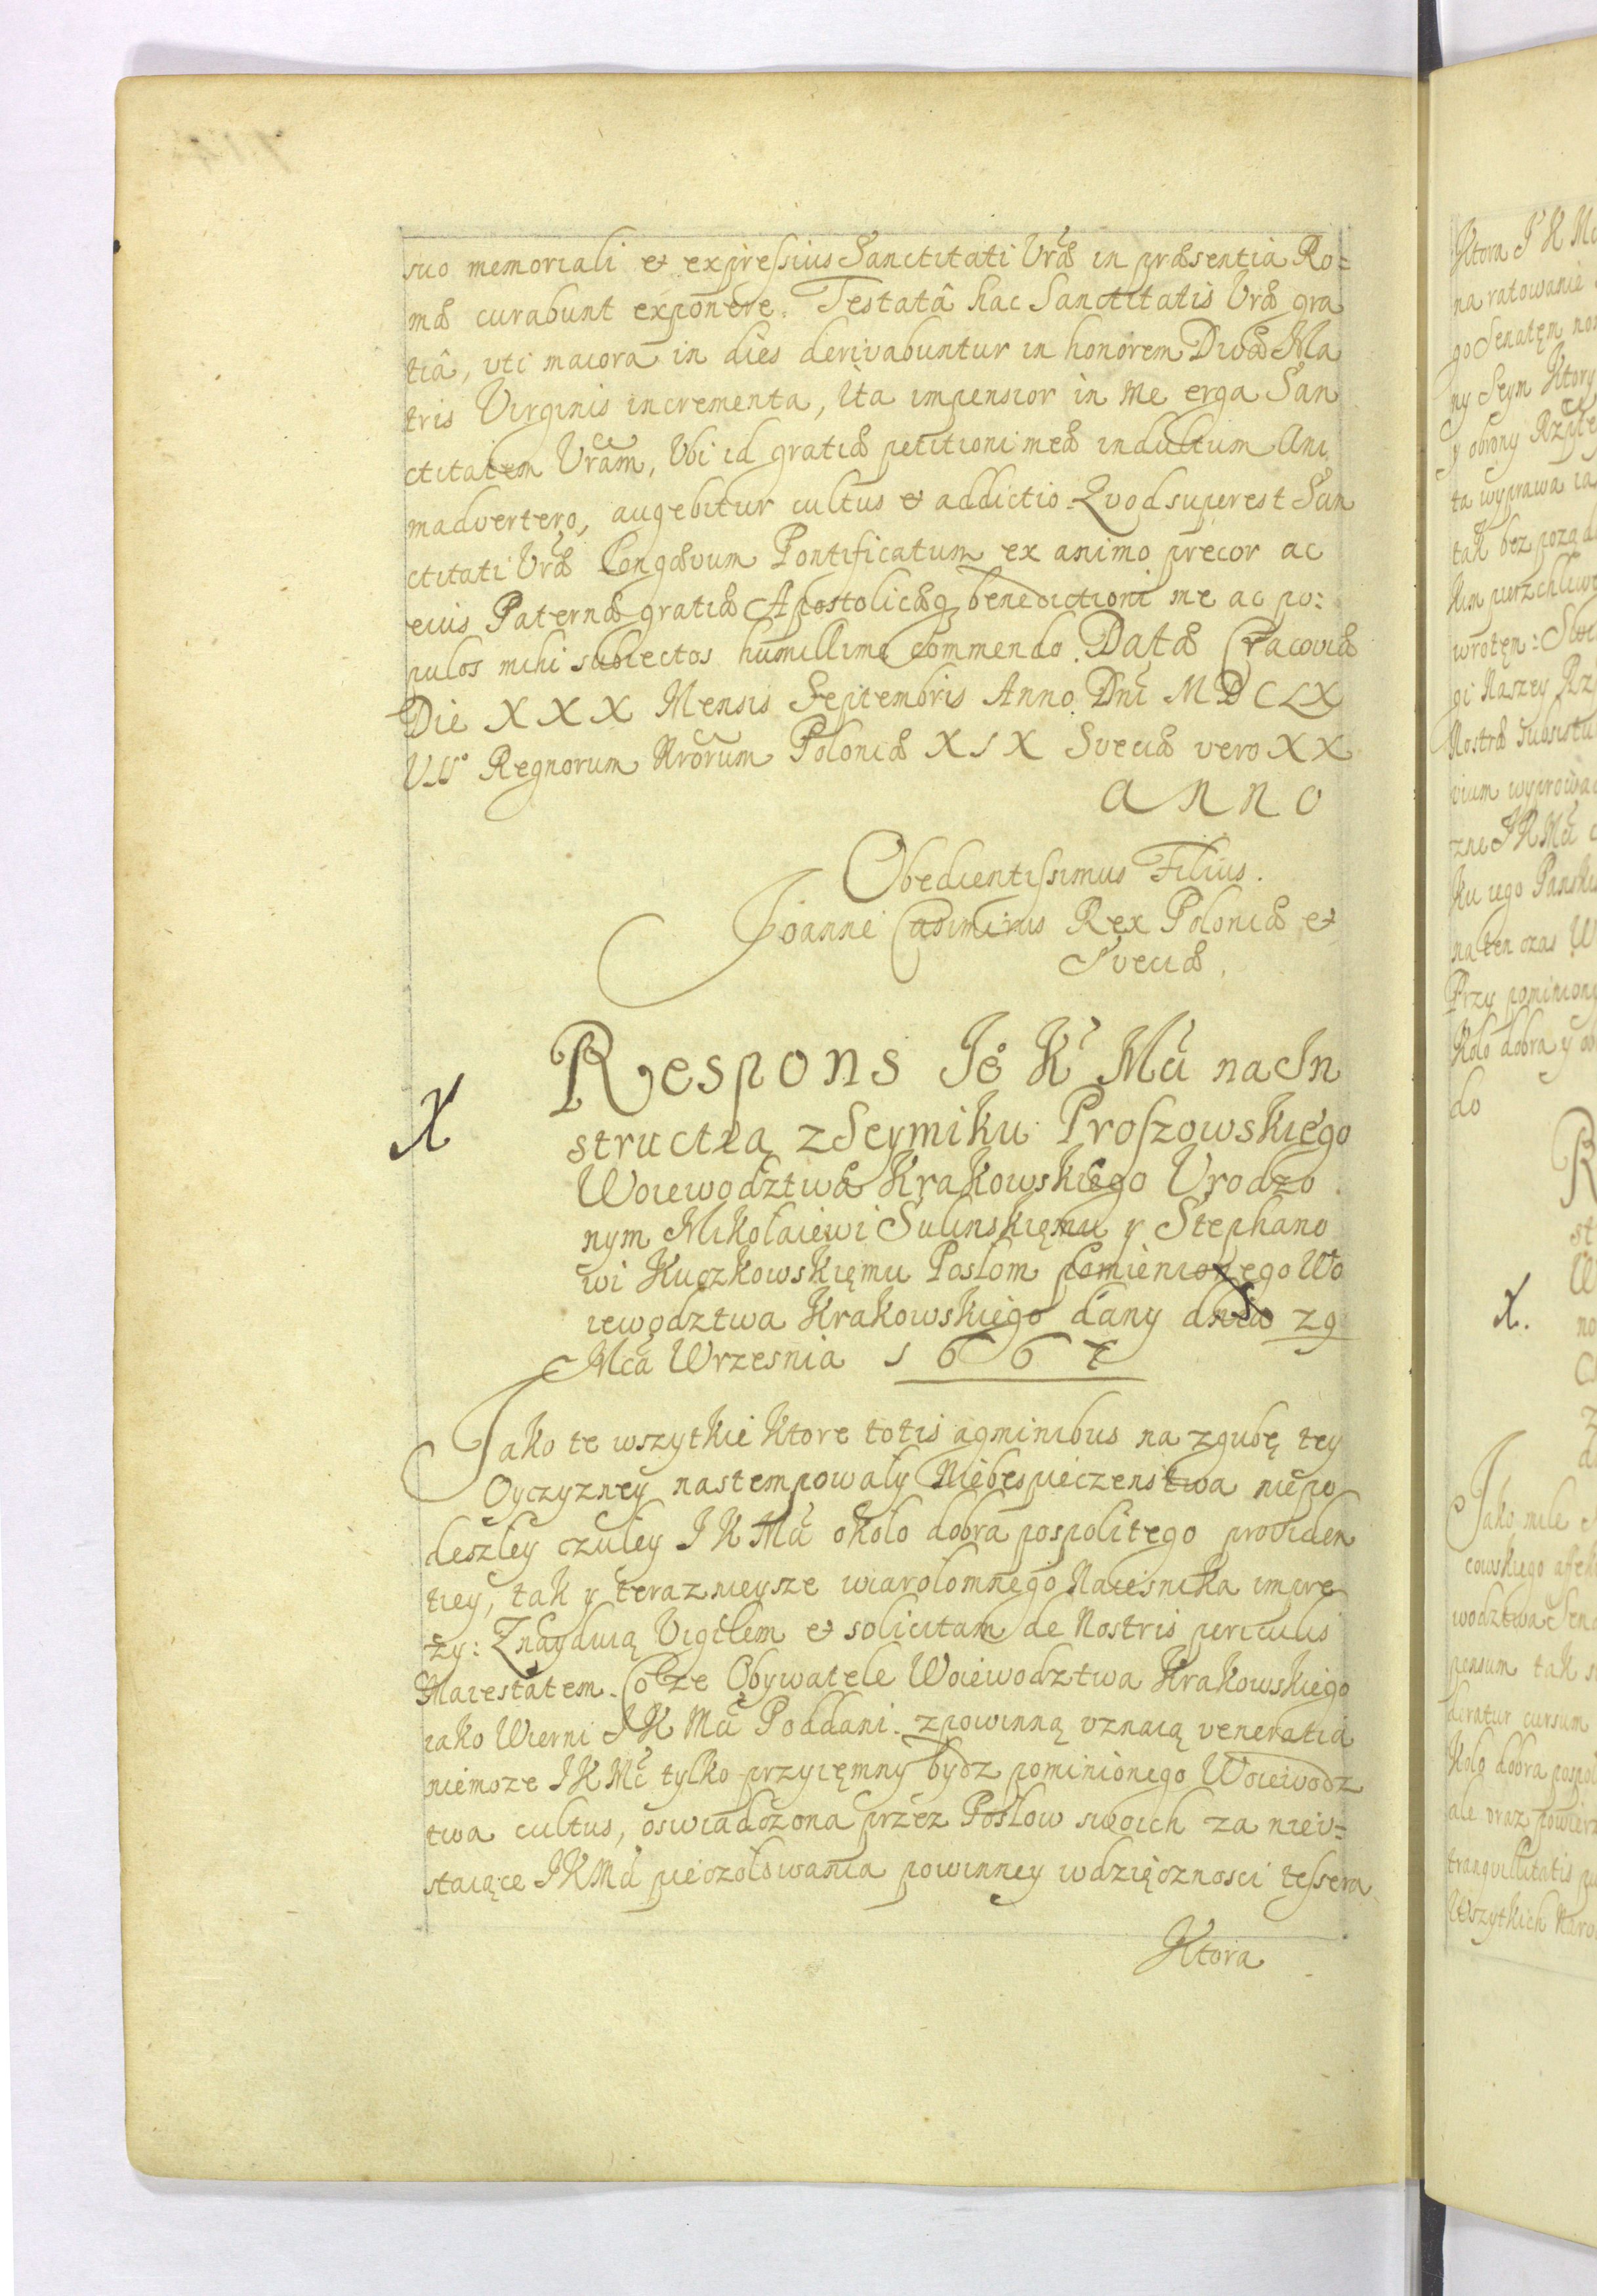 suo memoriali et expressius Sanctitati Vræ in præsentia Ro=
mæ curabunt exponere. Testatâ hac Sanctitatis Vræ gra
tiâ, uti maiora in dies derivabuntur in honorem Divæ Ma
tris Virginis incrementa, ita impensior in me erga San
ctitatem Vram, Ubi id gratiæ petitioni meæ indultum Ani
madvertero, augebitur cultus et addictio. Quod superest San
ctitati Vræ Longævum Pontificatum ex animo precor ac
eius Paternæ gratiæ Apostolicæq benedictioni me ac po:
pulos mihi subiectos humillime commendo. Datæ Cracoviæ
Die XXX Mensis Septembris Anno Dni MDCLX
VII° Regnorum Nrorum Poloniæ XIX Sveciæ vero XX
anno
Obedientissimus Filius.
Joannes Casimirus Rex Poloniæ et
Sveciæ.
X
Respons Jeo K Mci na In
structią z Seymiku Proszowskiego
Woiewodztwa Krakowskiego Urodzo
nym Mikołaiewi Sulinskięmu y Stephano
wi Kuczkowskięmu Posłom pomienionego Wo
iewodztwa Krakowskiego dany dnia 29
Mca Wrzesnia 1667
Jako te wszytkie ktore totis agminibus na zgubę tey
Oyczyzney nastempowały Niebespieczenstwa niepo
deszłey czułey J K Mci około dobra pospolitego providen
tiey, tak y terazniejsze wiarołomnego Naiesnika impre
zy: Znayduią Vigilem et solicitam de Nostris periculis
Maiestatem. Co ze Obywatele Woiewodztwa Krakowskiego
iako Wierni J K Mci Poddani zpowinną uznaią veneratią
niemoze J K Mci tylko przyięmny bydz pominionego Woiewodz
twa cultus, oswiadczona przez Posłow swoich za nieu=
staiące J K Mci pieczołowania powinney wdzięcznosci tessera
Ktora
Ktora J K Mc
na ratowanie
go Senatęm
ny Seym Ktory
y obrony Rzpte
ta wyprawa
tak bez
wrotęm:
gi Naszey
Nostræ
vium
zne J K Mci
ku iego Panskie
na ten czas W
Przy pominiong
Koło dobra y
do
R
st
W
X.
no
Jako miłe
cowskiego
wodztwa Sena
pensum tak
deratur cursum
Koło dobra pospol
ale oraz powierz
tranquillitatis pu
Wszytkich Naro